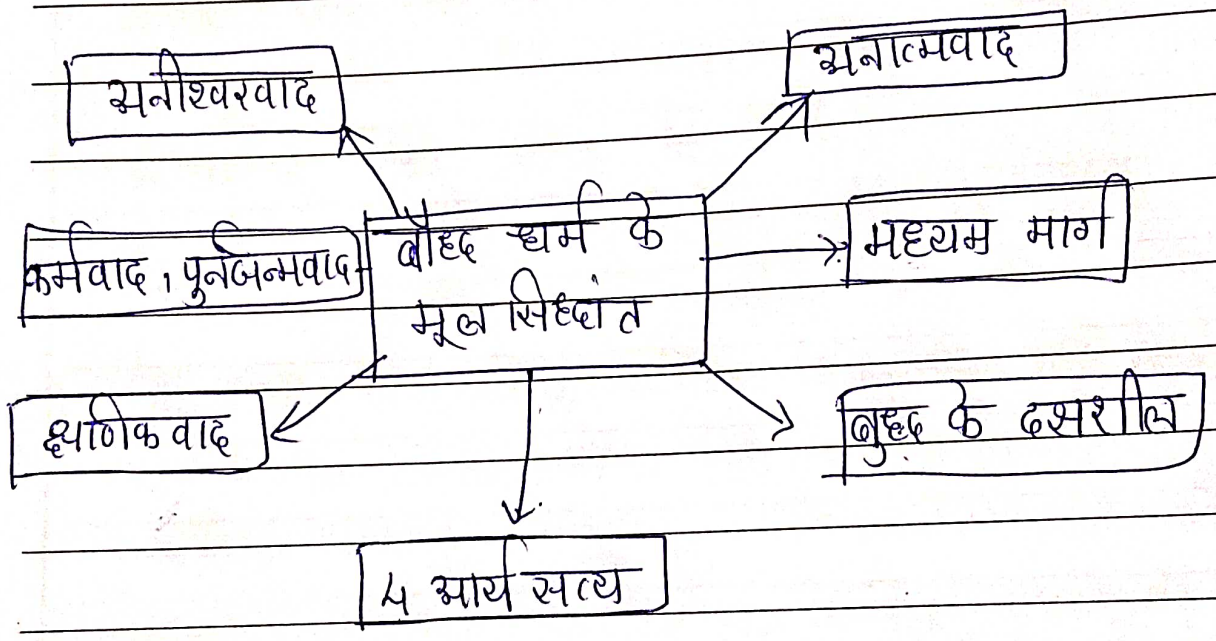 अनीश्वरवाद
अनात्मवाद
कर्मवाद, पुर्नजन्मवाद
बौद्ध धर्म के
मूल सिद्धांत
मध्यम मार्ग
क्षणिकवाद
बुद्ध के दसशील
4 आर्य सत्य